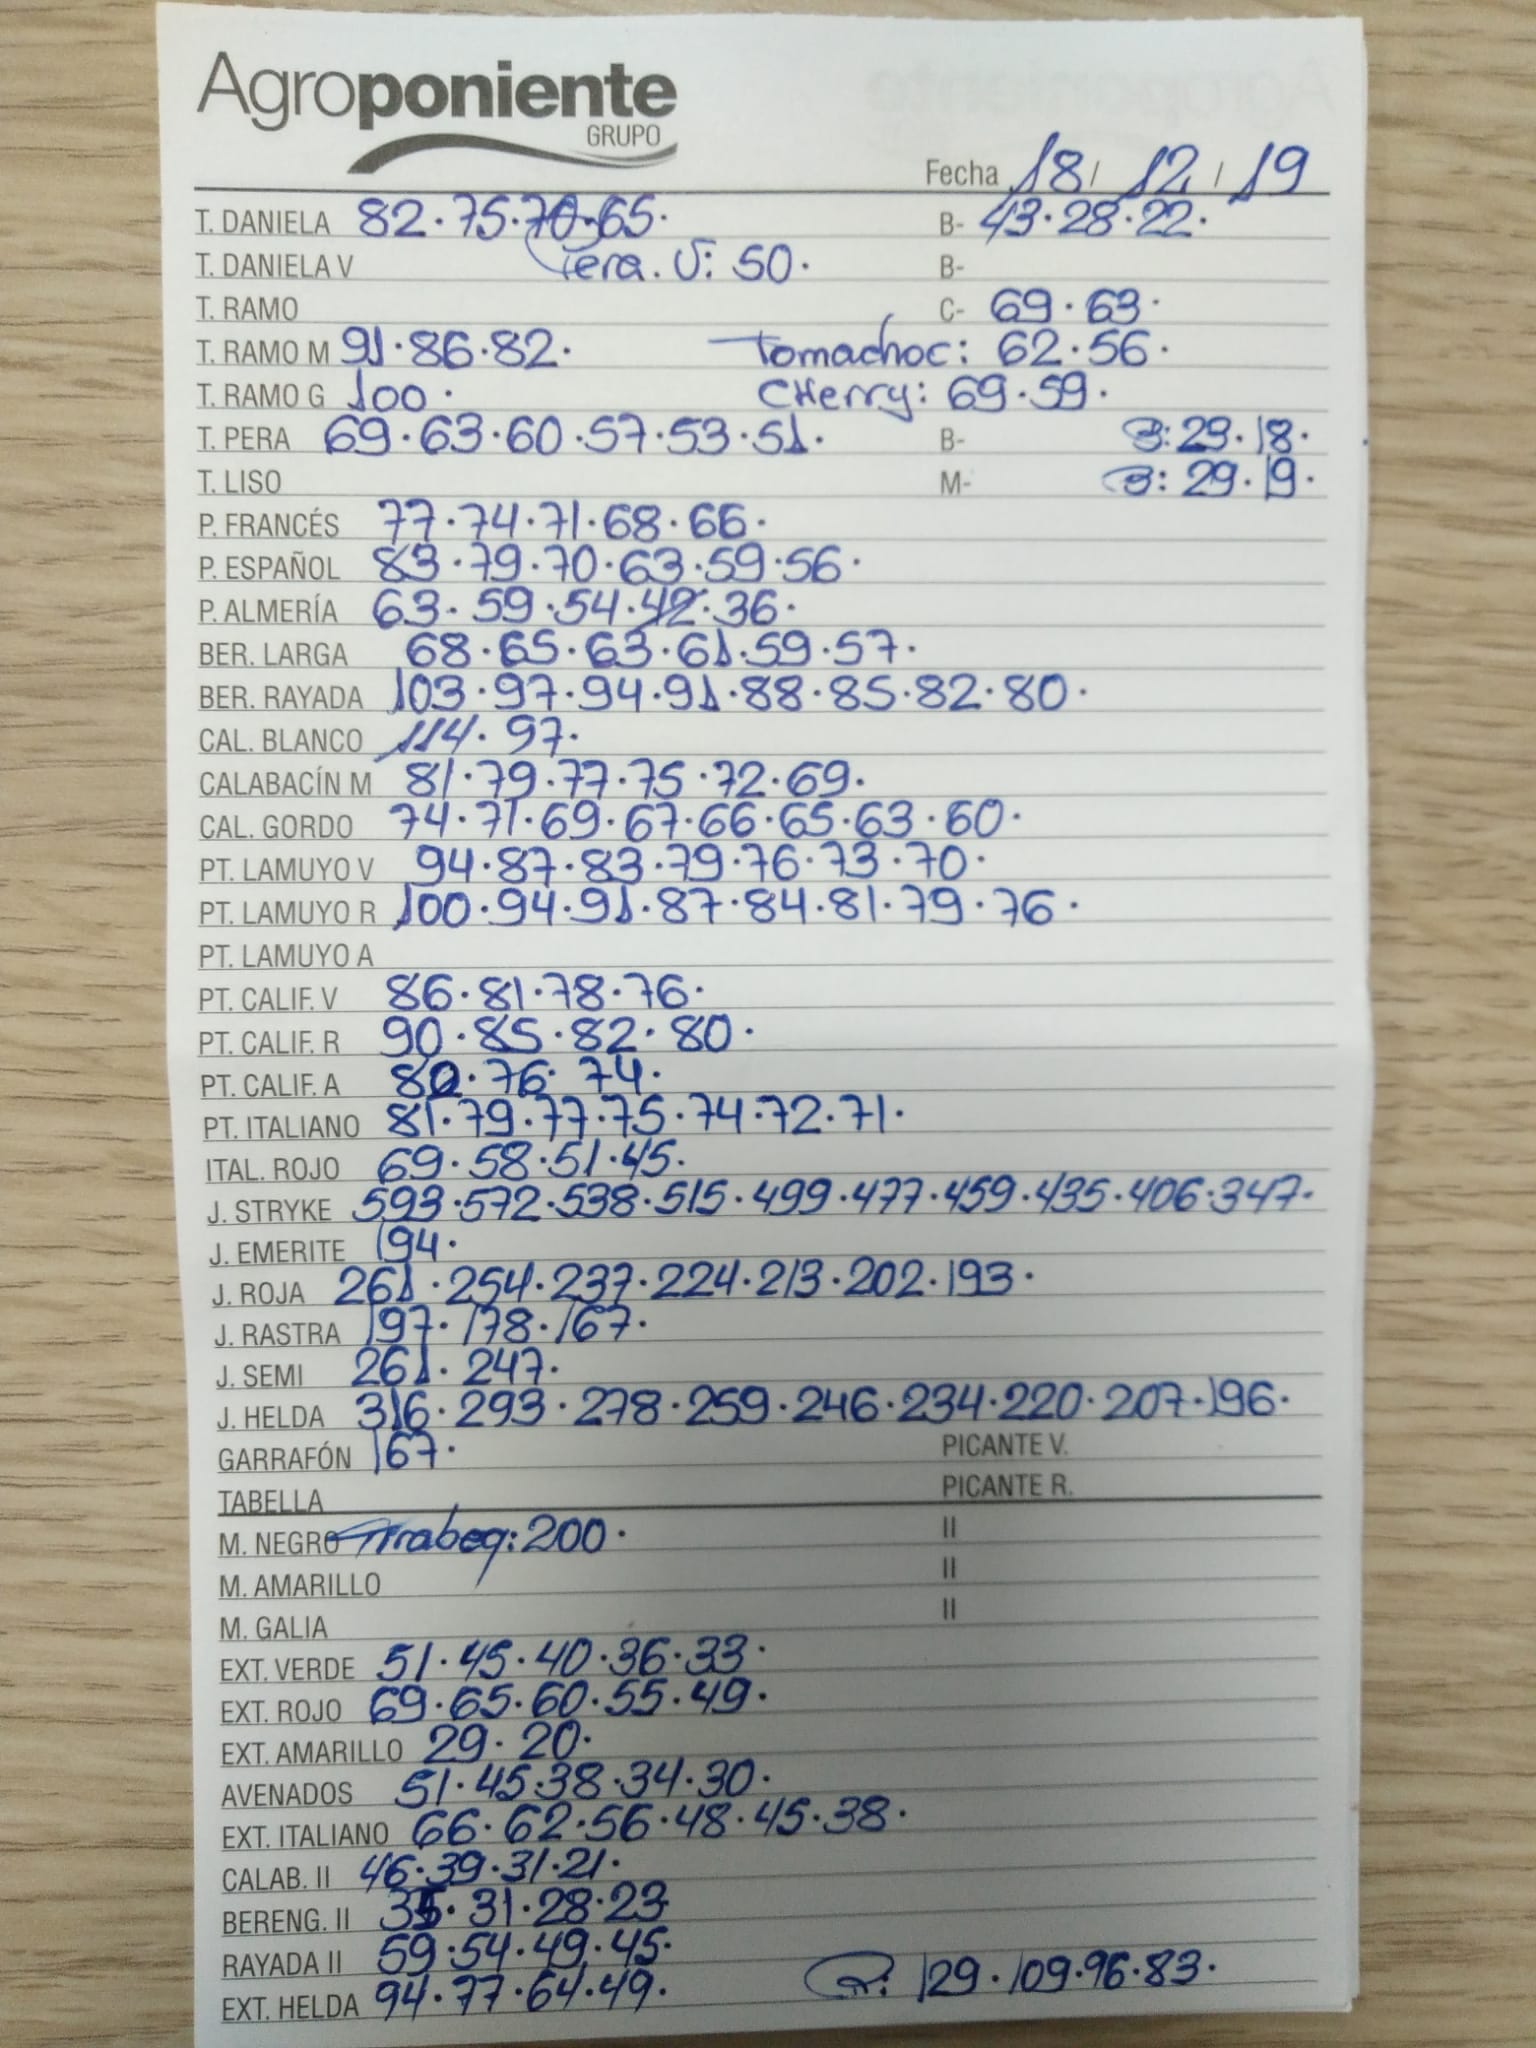 Agroponiente
GRUPO
Fecha 18 / 12 / 19
T. DANIELA 82·75·70·65· B- 43·28·22·
T. DANIELA V Pera. V: 50· B-
T. RAMO C- 69·63·
T. RAMO M 91·86·82· Tomachoc: 62·56·
T. RAMO G 100· CHerry: 69·59·
T. PERA 69·63·60·57·53·51· B- B: 29·18·
T. LISO M- B: 29·19·
P. FRANCÉS 77·74·71·68·66·
P. ESPAÑOL 83·79·70·63·59·56·
P. ALMERÍA 63·59·54·42·36·
BER. LARGA 68·65·63·61·59·57·
BER. RAYADA 103·97·94·91·88·85·82·80·
CAL. BLANCO 114·97·
CALABACÍN M 81·79·77·75·72·69·
CAL. GORDO 74·71·69·67·66·65·63·60·
PT. LAMUYO V 94·87·83·79·76·73·70·
PT. LAMUYO R 100·94·91·87·84·81·79·76·
PT. LAMUYO A
PT. CALIF. V 86·81·78·76·
PT. CALIF. R 90·85·82·80·
PT. CALIF. A 80·76·74·
PT. ITALIANO 81·79·77·75·74·72·71·
ITAL. ROJO 69·58·51·45·
J. STRYKE 593·572·538·515·499·477·459·435·406·347·
J. EMERITE 194·
J. ROJA 261·254·237·224·213·202·193·
J. RASTRA 197·178·167·
J. SEMI 261·247·
J. HELDA 316·293·278·259·246·234·220·207·196·
GARRAFÓN 167· PICANTE V.
TABELLA PICANTE R.
M. NEGRO Tirabeq: 200· II
M. AMARILLO II
M. GALIA II
EXT. VERDE 51·45·40·36·33·
EXT. ROJO 69·65·60·55·49·
EXT. AMARILLO 29·20·
AVENADOS 51·45·38·34·30·
EXT. ITALIANO 66·62·56·48·45·38·
CALAB. II 46·39·31·21·
BERENG. II 35·31·28·23
RAYADA II 59·54·49·45·
EXT. HELDA 94·77·64·49· R: 129·109·96·83·